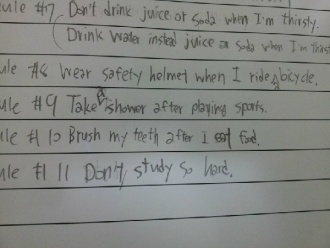 ule #7 Don't drink juice or soda when I'm thirsty.
(Drink water insted juice or soda when I'm thirst
ule #8 Wear safety helmet when I ride a bicycle.
ule #9 Take a shower after playing sports.
ule #10 Brush my teeth after I eat food.
ule #11 Don't study so hard.